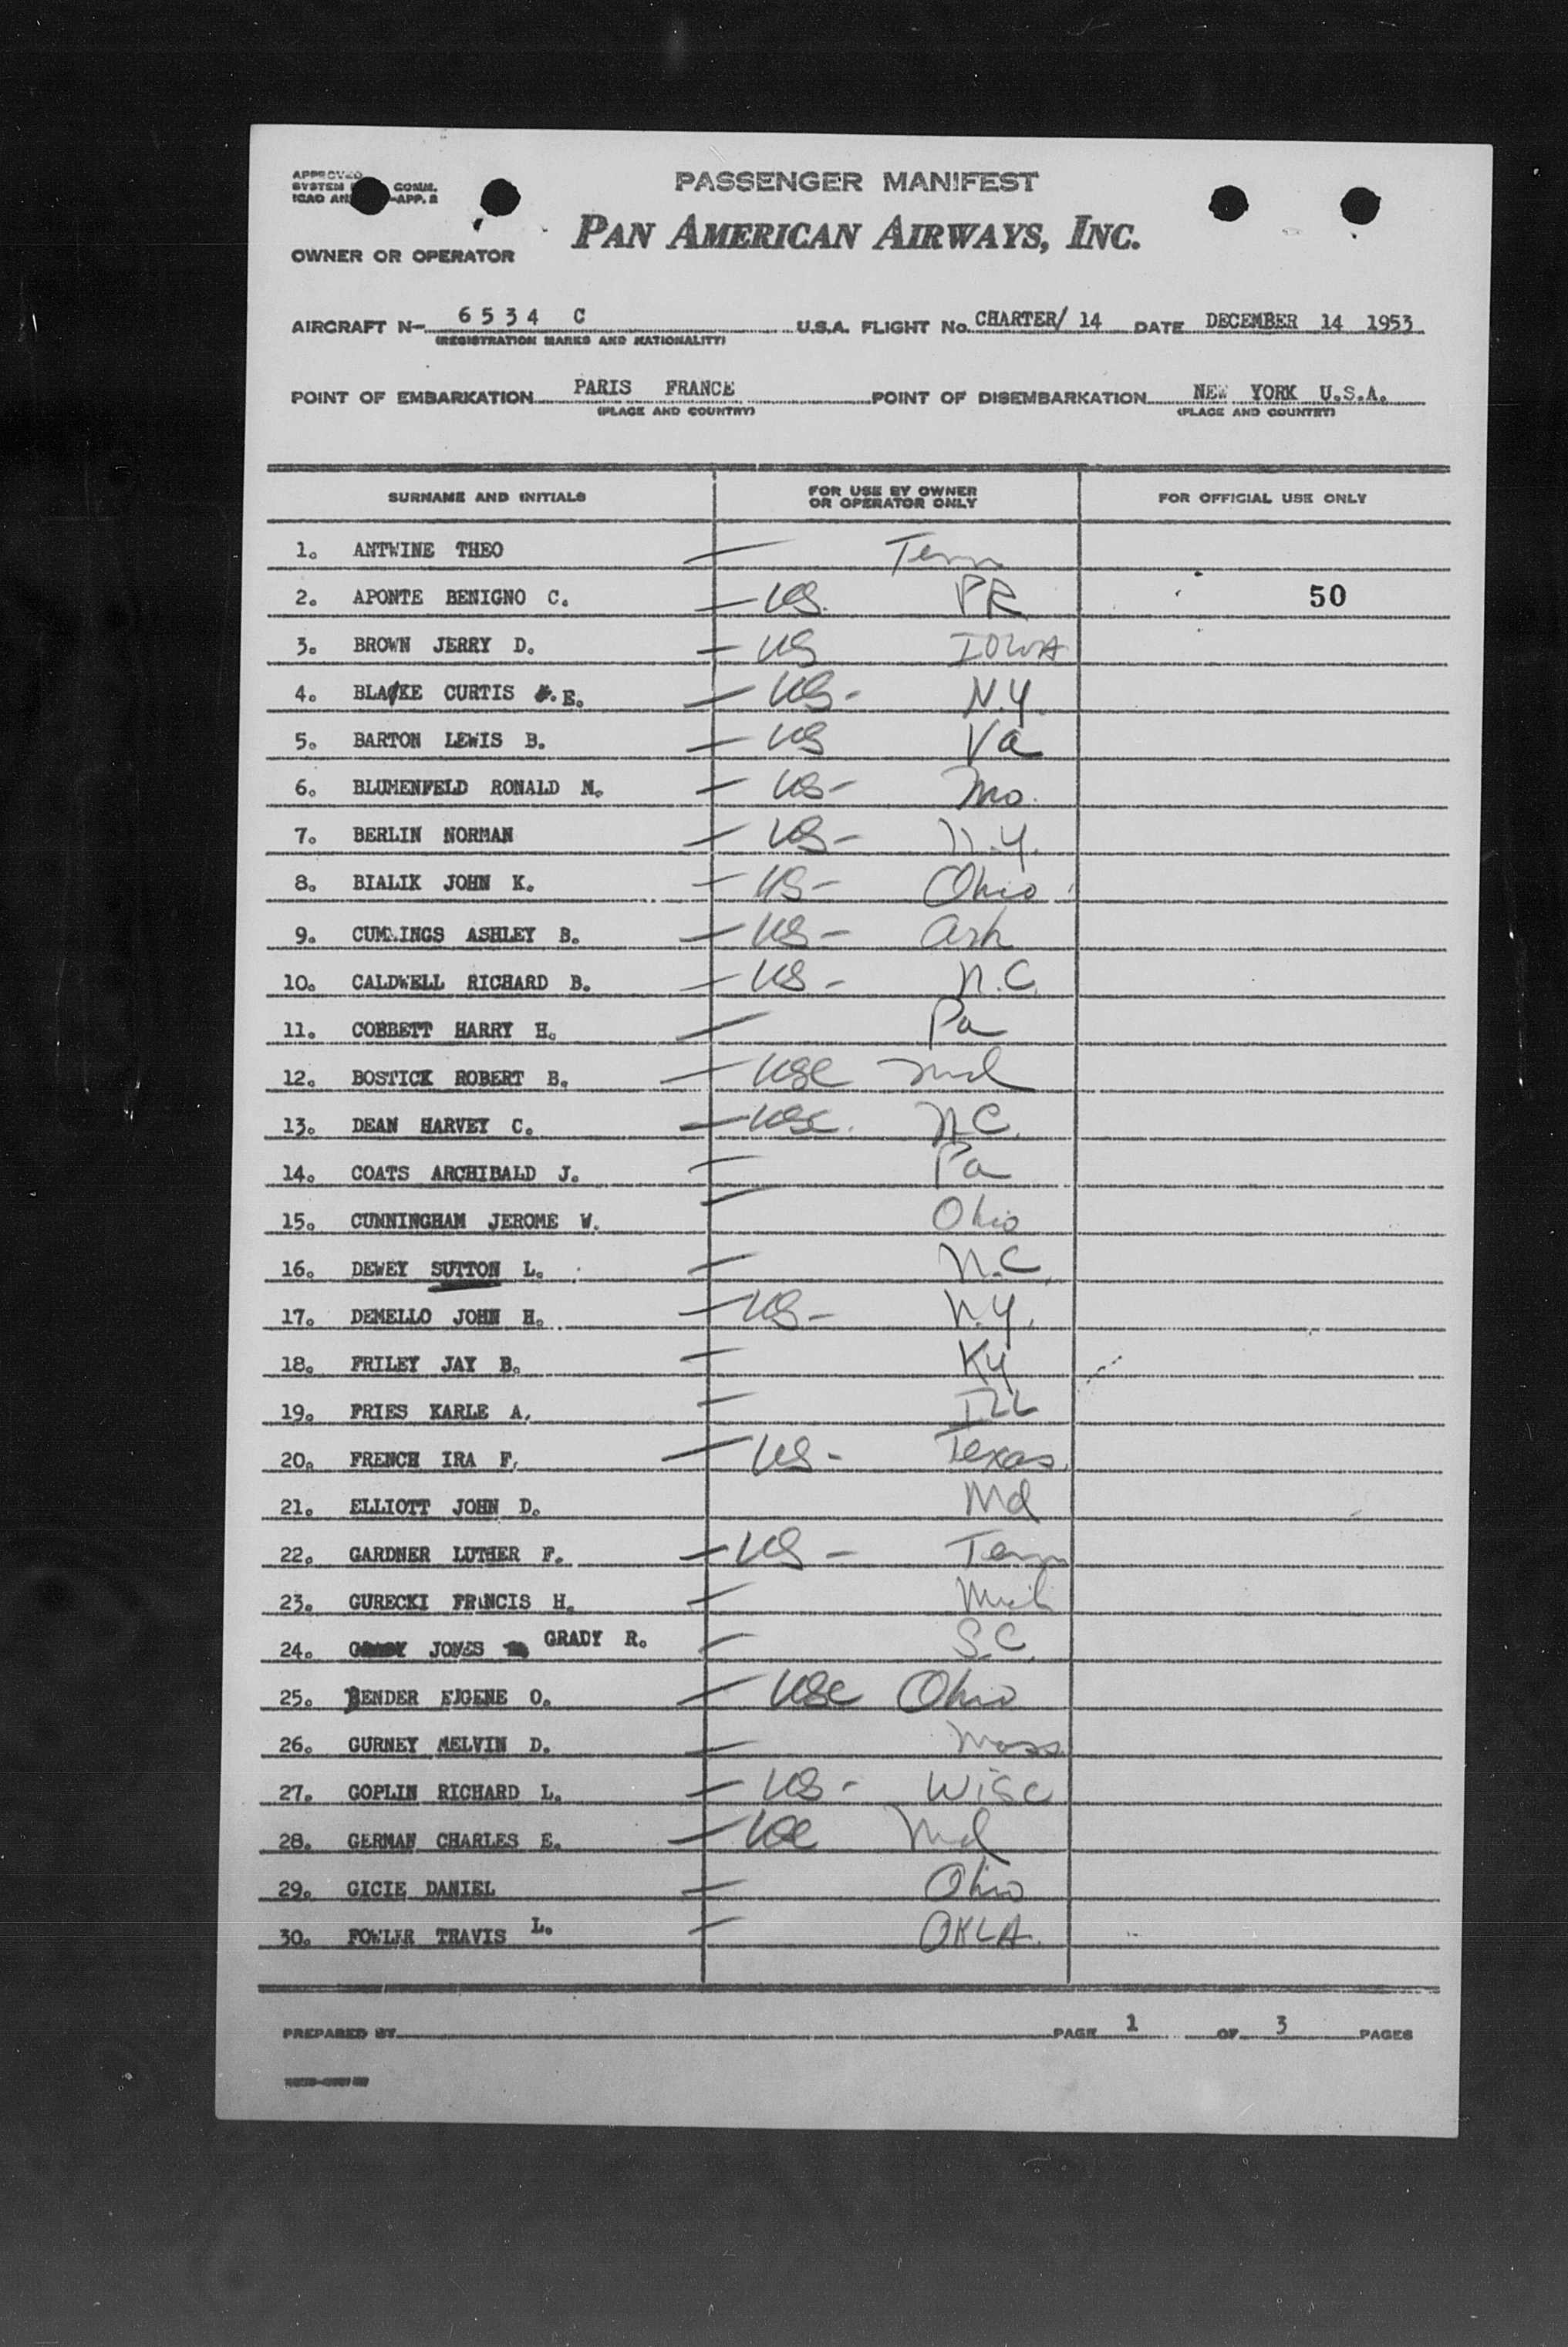 PASSENGER MANIFEST
APPROVED
SYSTEM COMM.
ICAO -APP. 2
PAN AMERICAN AIRWAYS, INC.
OWNER OR OPERATOR
AIRCRAFT N- 6534 C U.S.A. FLIGHT No. CHARTER/ 14 DATE DECEMBER 14 1953
(REGISTRATION MARKS AND NATIONALITY)
POINT OF EMBARKATION PARIS FRANCE POINT OF DISEMBARKATION NEW YORK U.S.A.
(PLACE AND COUNTRY) (PLACE AND COUNTRY)
SURNAME AND INITIALS FOR USE BY OWNER OR OPERATOR ONLY FOR OFFICIAL USE ONLY
1. ANTWINE THEO — Tenn
2. APONTE BENIGNO C. — US. PR 50
3. BROWN JERRY D. — US IOWA
4. BLAKE CURTIS E. — US- N.Y.
5. BARTON LEWIS B. — US Va
6. BLUMENFELD RONALD M. — US- Mo.
7. BERLIN NORMAN — US- N.Y.
8. BIALIK JOHN K. — US- Ohio
9. CUMMINGS ASHLEY B. — US- Ark
10. CALDWELL RICHARD B. — US- N.C.
11. COBBETT HARRY H. — Pa
12. BOSTICK ROBERT B. — USC Md
13. DEAN HARVEY C. — USC. N.C.
14. COATS ARCHIBALD J. — Pa
15. CUNNINGHAM JEROME W. — Ohio
16. DEWEY SUTTON L. — N.C.
17. DEMELLO JOHN H. — US- N.Y.
18. FRILEY JAY B. — Ky
19. FRIES KARLE A. — ILL
20. FRENCH IRA F. — US- Texas
21. ELLIOTT JOHN D. Md
22. GARDNER LUTHER F. — US- Tenn
23. GURECKI FRANCIS H. — Mich
24. JONES GRADY R. — S.C.
25. BENDER EUGENE O. — USC Ohio
26. GURNEY MELVIN D. — Mass
27. GOPLIN RICHARD L. — US- Wisc
28. GERMAN CHARLES E. — USC Md
29. GICIE DANIEL — Ohio
30. FOWLER TRAVIS L. — OKLA.
PREPARED BY PAGE 1 OF 3 PAGES